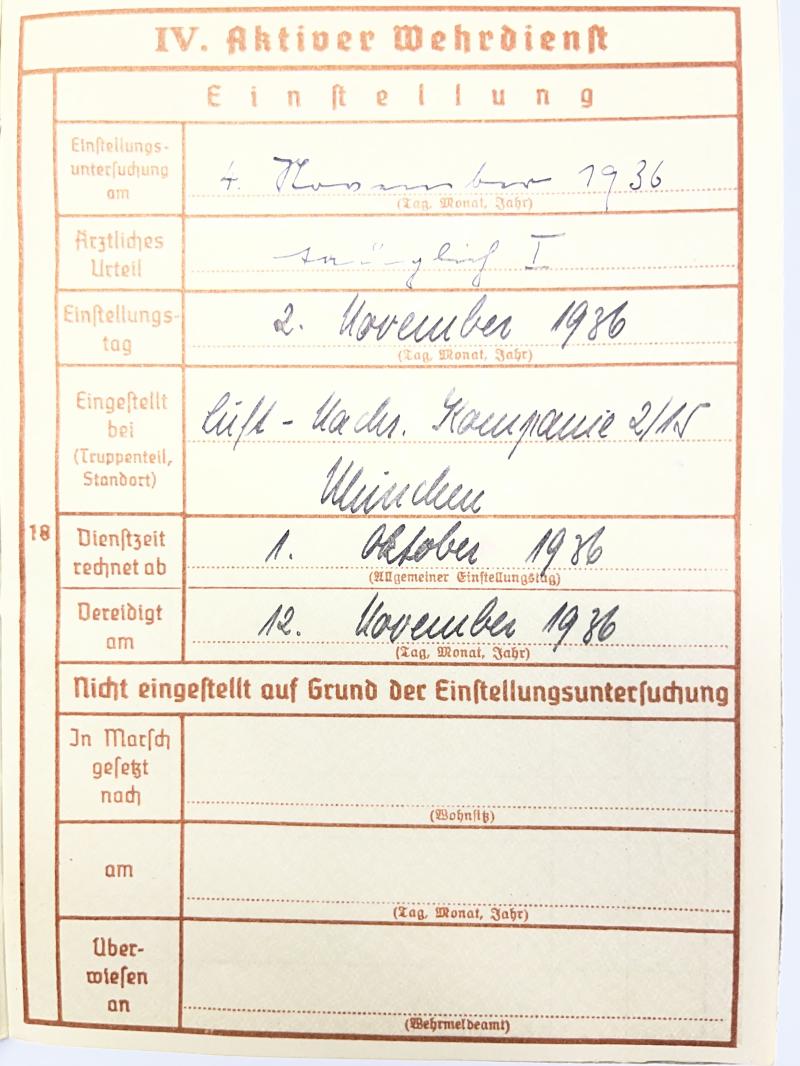 IV. Aktiver Wehrdienst
Einstellung
Einstellungs-
untersuchung
am
4. November 1936
(Tag, Monat, Jahr)
Ärztliches
Urteil
tauglich I
Einstellungs-
tag
2. November 1936
(Tag, Monat, Jahr)
Eingestellt
bei
(Truppenteil,
Standort)
Luft - Nachr. Kompanie 2/15
München
18
Dienstzeit
rechnet ab
1. Oktober 1936
(Allgemeiner Einstellungstag)
Vereidigt
am
12. November 1936
(Tag, Monat, Jahr)
Nicht eingestellt auf Grund der Einstellungsuntersuchung
In Marsch
gesetzt
nach
(Wohnsitz)
am
(Tag, Monat, Jahr)
Über-
wiesen
an
(Wehrmeldeamt)